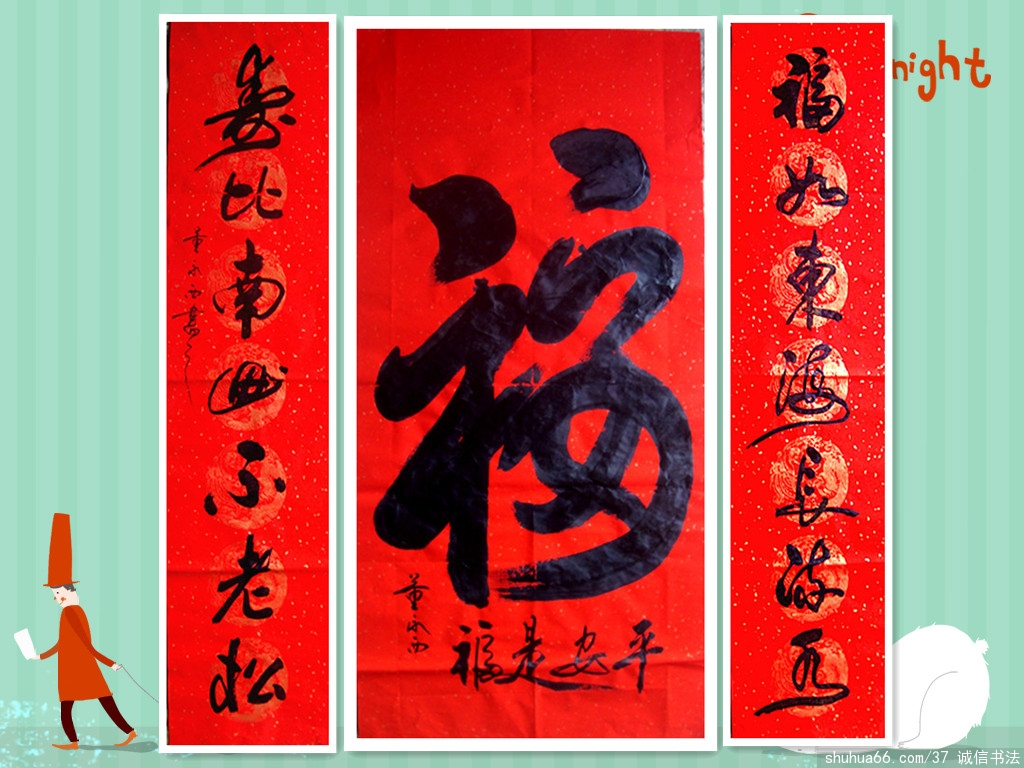 福如東海長流水
福
平安是福
董永西
壽比南山不老松
董永西書
night
shuhua66.com/37 诚信书法